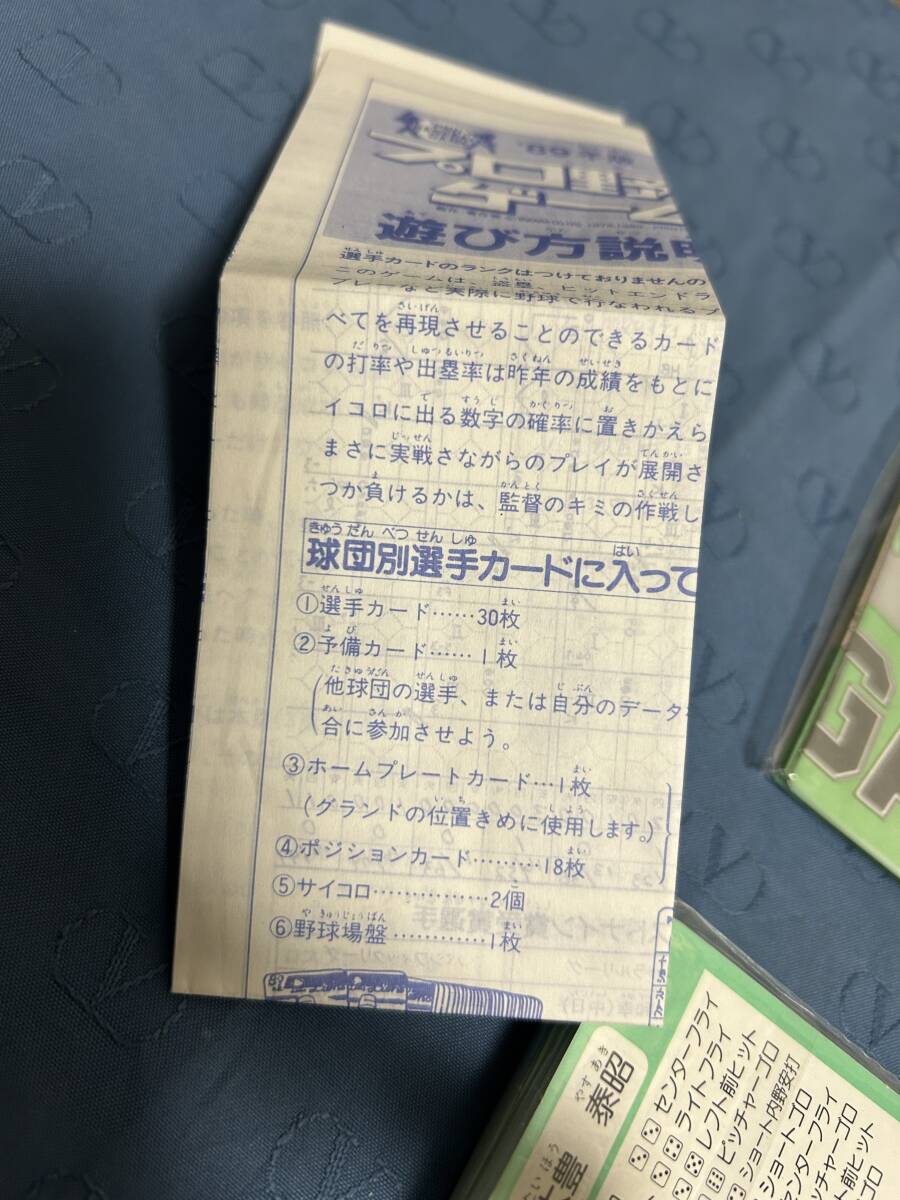 '89年版
プロ野
ゲー
遊び方説明
選手カードのランクはつけておりませんの
このゲームは、盗塁、ヒットエンドラ
プレーなど実際に野球で行なわれるプ
べてを再現させることのできるカード
の打率や出塁率は昨年の成績をもとに
イコロに出る数字の確率に置きかえら
まさに実戦さながらのプレイが展開さ
つか負けるかは、監督のキミの作戦し
球団別選手カードに入って
①選手カード……30枚
②予備カード……1枚
(他球団の選手、または自分のデータ
合に参加させよう。
③ホームプレートカード…1枚
(グランドの位置きめに使用します。)
④ポジションカード………18枚
⑤サイコロ……………2個
⑥野球場盤…………1枚
泰昭
豊
センターフライ
ライトフライ
レフト前ヒット
ピッチャーゴロ
ショート内野安打
ショートゴロ
センターフライ
チャーゴロ
前ヒット